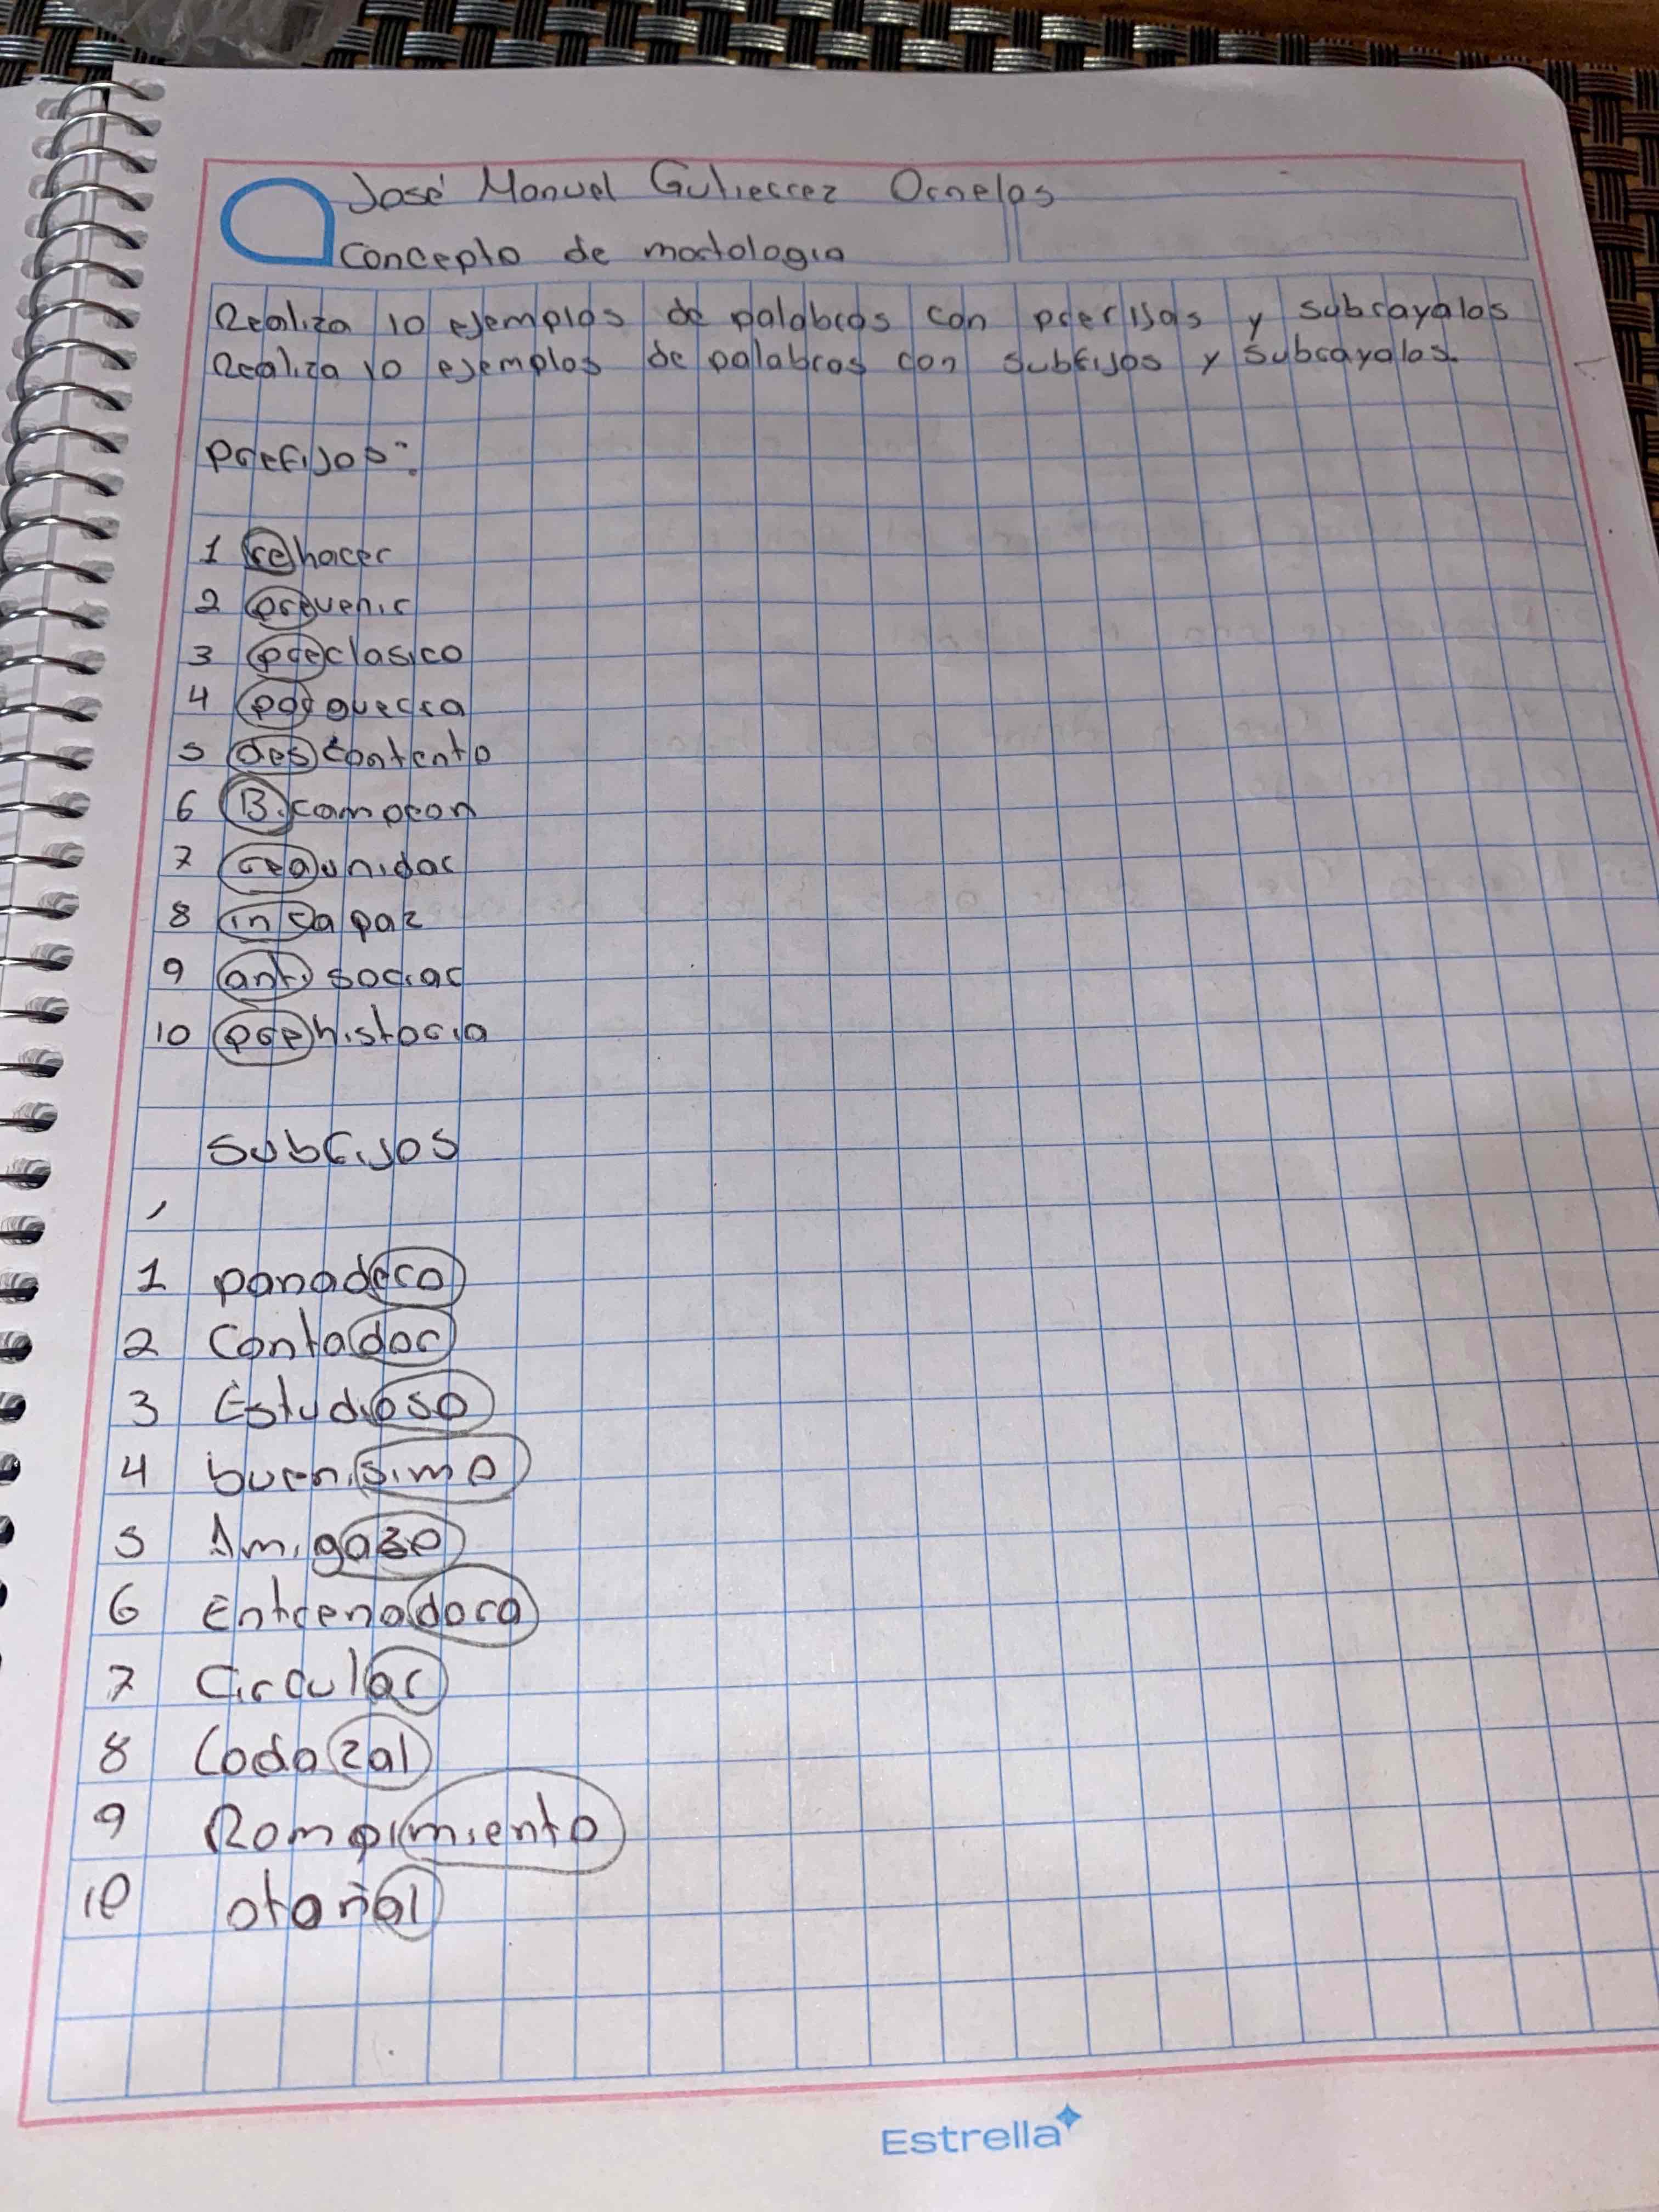 José Manuel Gutierrez Ornelas
Concepto de mortologia
Realiza 10 ejemplos de palabras con prerijos y subrayalos
Realiza 10 ejemplos de palabras con subfijos y subrayalos.
Prefijos:
1 rehacer
2 prevenir
3 preclasico
4 posguerra
5 descontento
6 Bicampeon
7 reaunidar
8 incapaz
9 antisociar
10 prehistoria
Subfijos
1 panadero
2 Contador
3 Estudioso
4 buenisimo
5 Amigazo
6 Entrenadora
7 Circular
8 Lodazal
9 Rompimiento
10 otoñal
Estrella